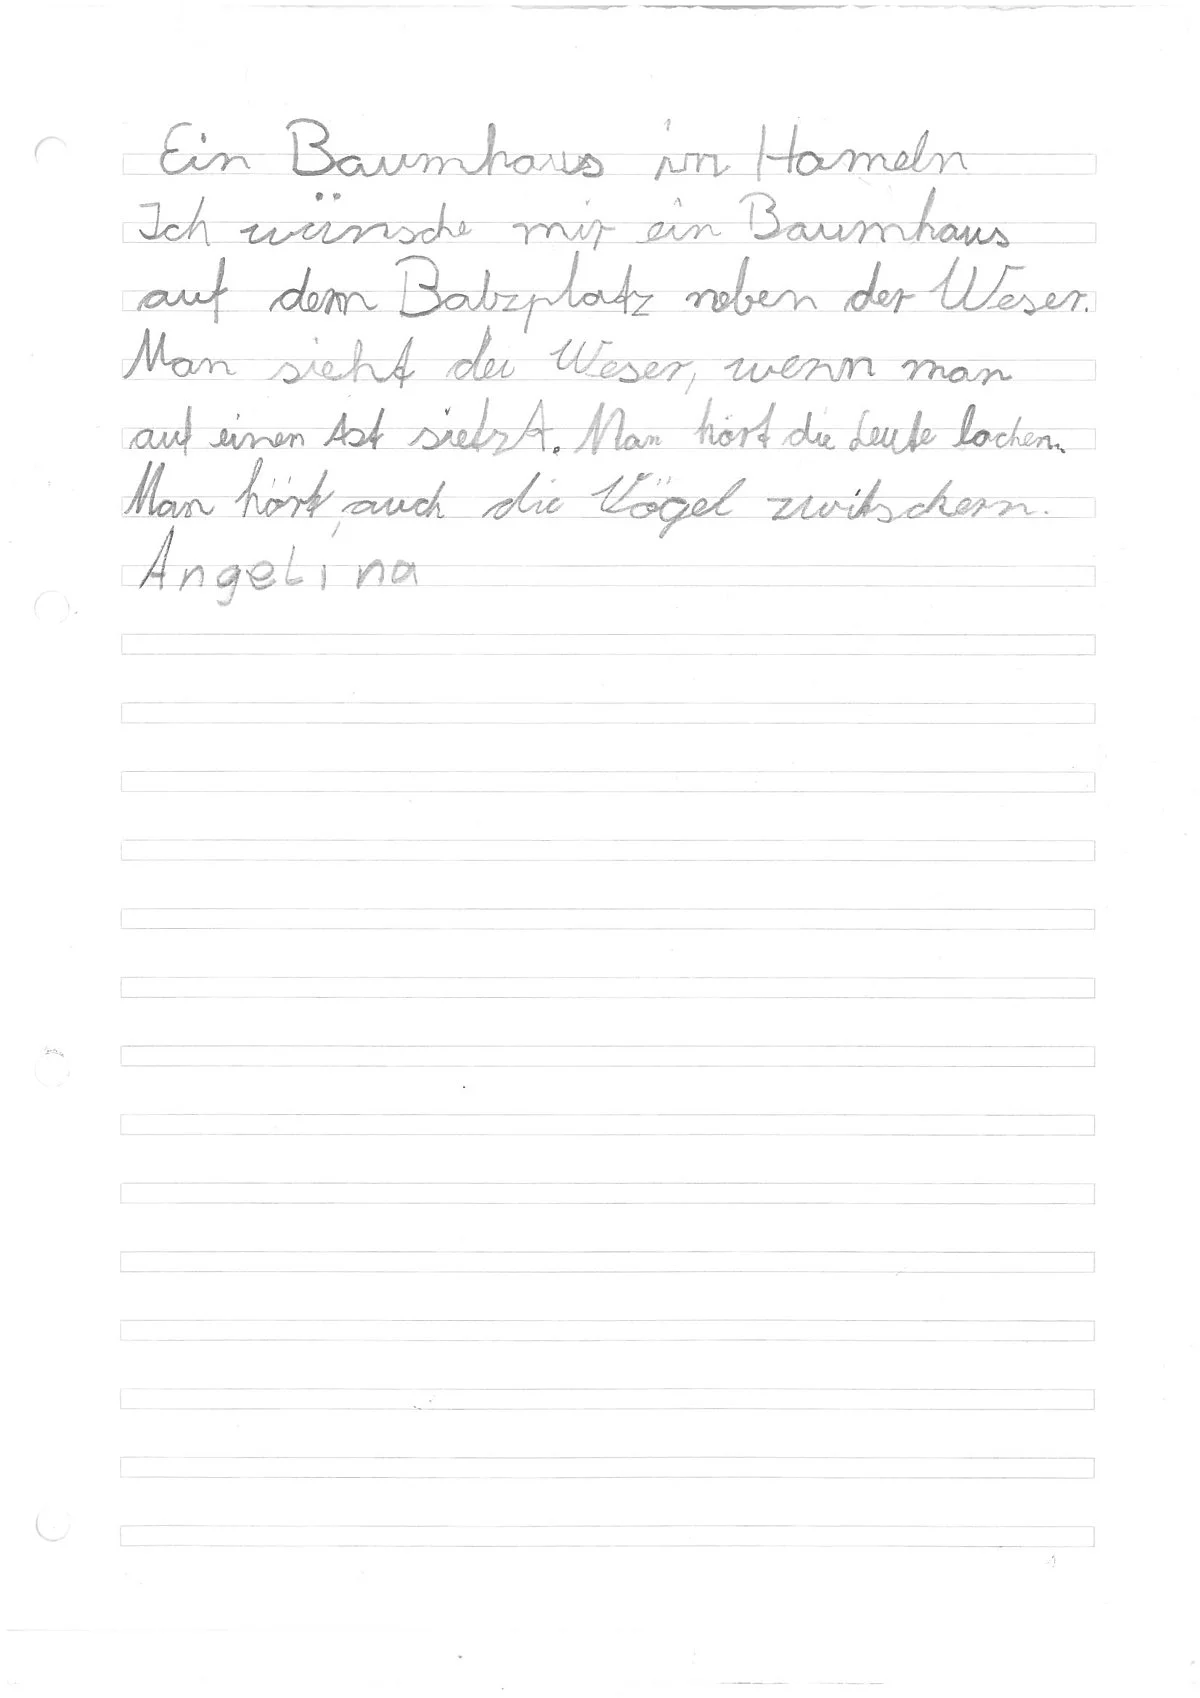 Ein Baumhaus in Hameln
Ich wünsche mir ein Baumhaus
auf dem Babzplatz neben der Weser.
Man sieht dei Weser, wenn man
auf einen Ast sietzt. Man hört die Leute lachen.
Man hört auch die Vögel zwitschern.
Angelina